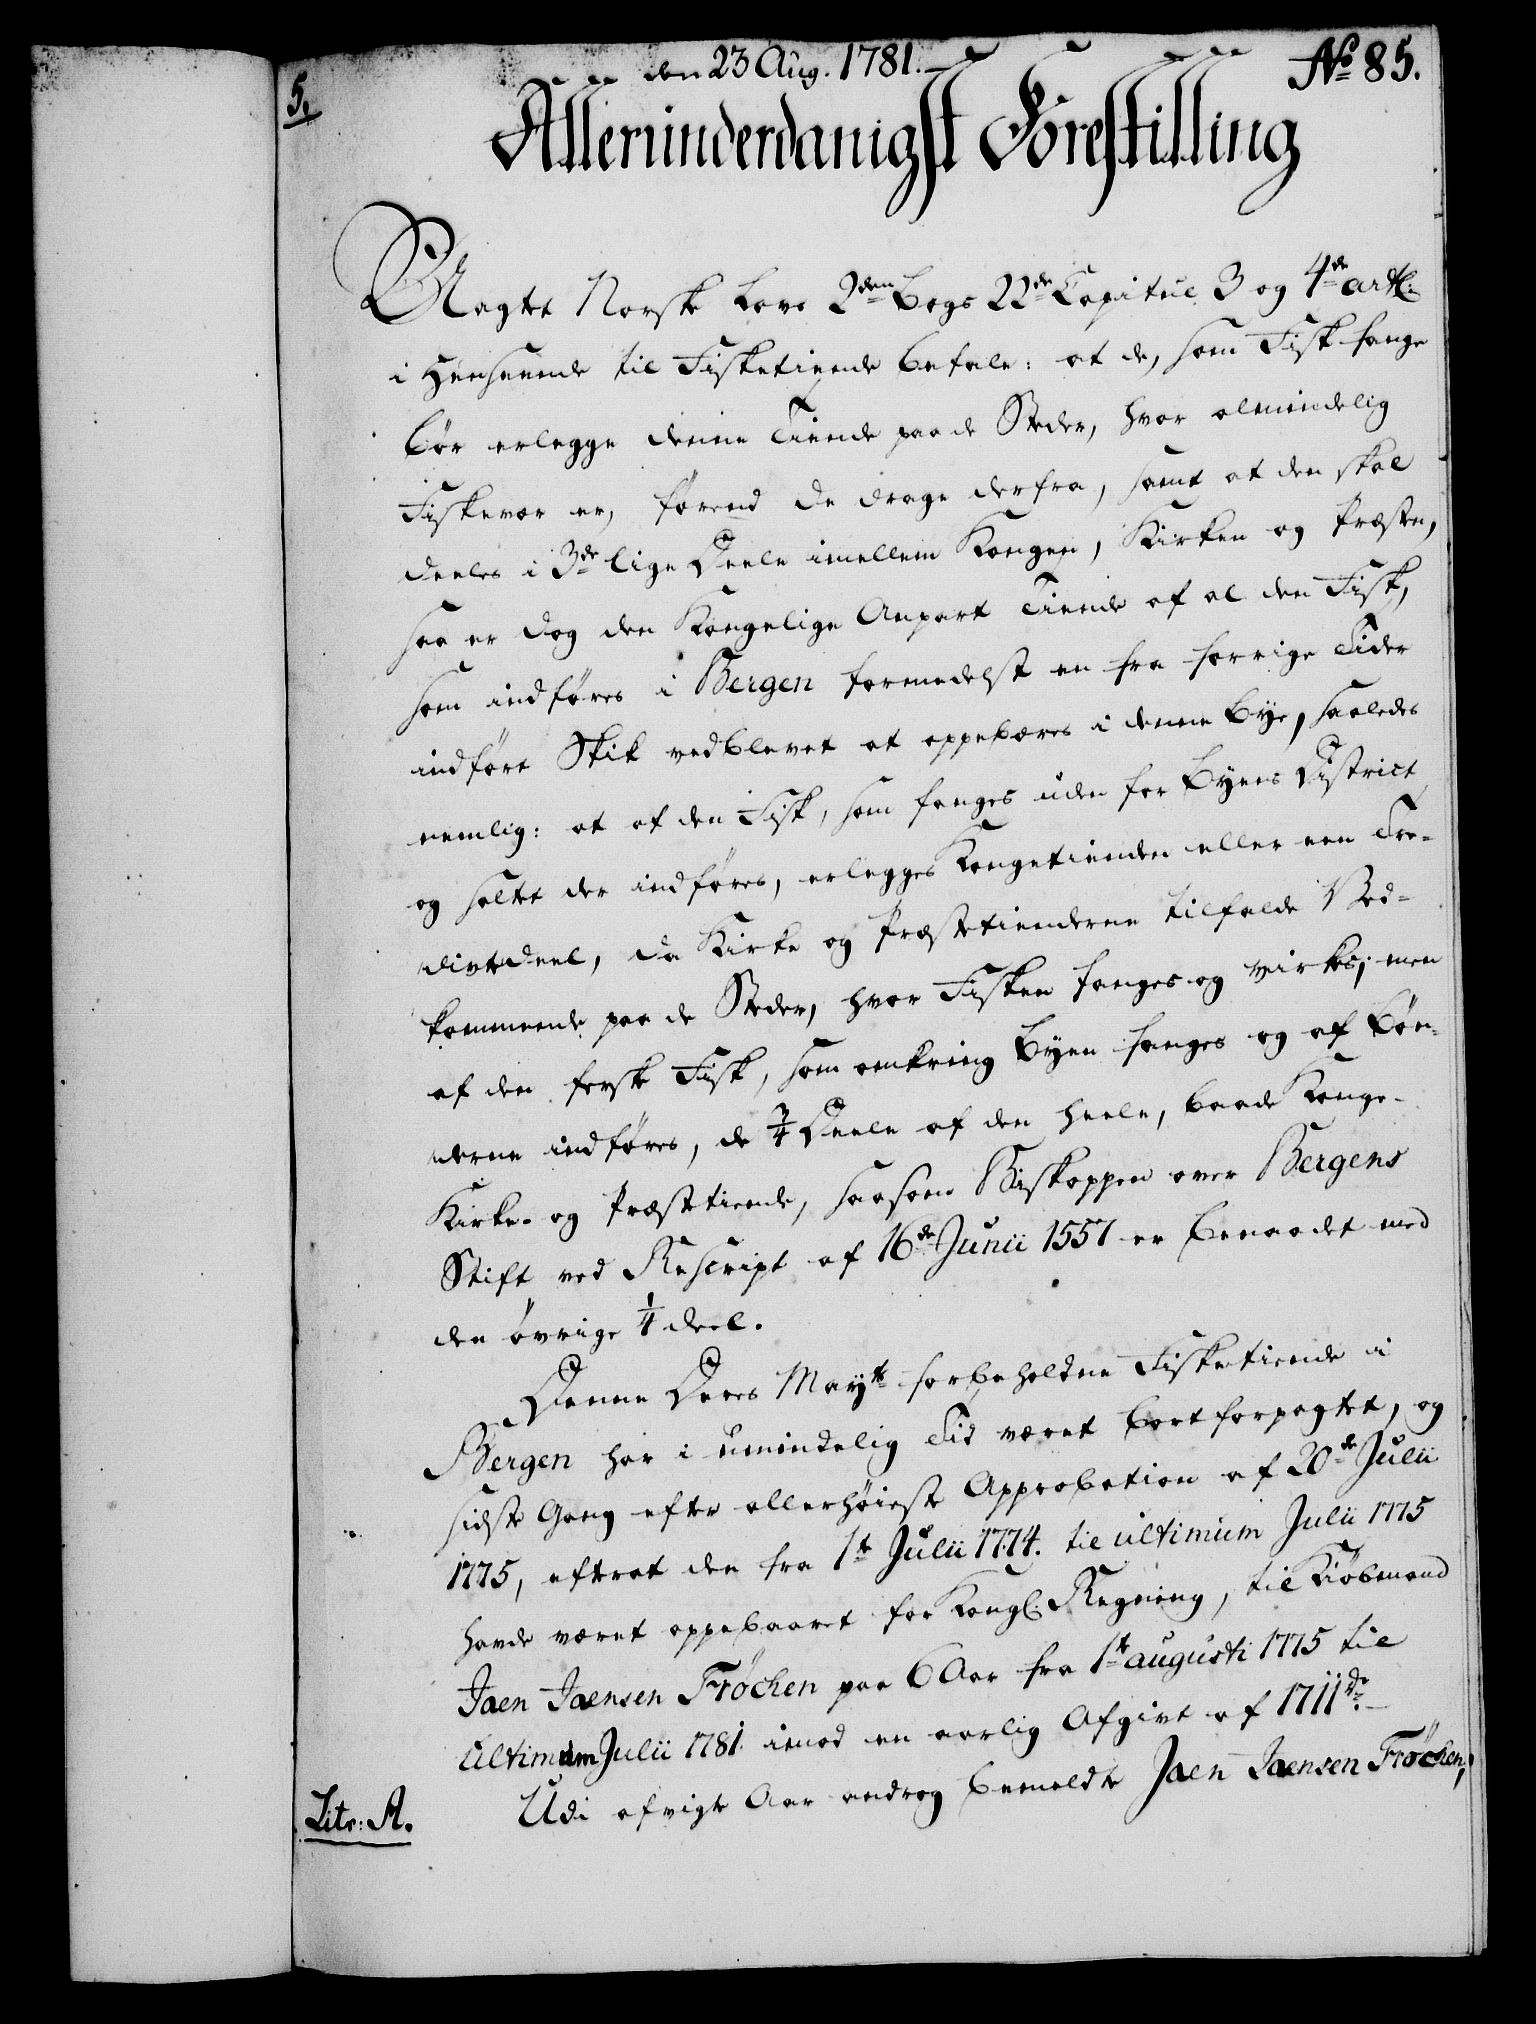 den 23 Aug. 1781.
No 85.
5.
Allerunderdanigst Forestilling
Uagtet Norske Lovs 2den Bogs 22de Capitul 3 og 4de artl.
i Henseende til Fisketiende befale: at de, som Fisk fange
bør erlegge denne Tiende paa de Steder, hvor almindelig
Fiskevær er, førend de drage derfra, samt at den skal
deeles i 3de lige Deele imellem Kongen, Kirken og Præsten,
saa er dog den Kongelige Anpart Tiende af al den Fisk,
som indføres i Bergen formedelst en fra forrige Tider
indført Skik vedblevet at oppebæres i denne Bye, saaledes
nemlig: at af den Fisk, som fanges uden for Byens District
og saltet der indføres, erlegges Kongetienden eller een Tre-
diedeel, da Kirke og Præstetienderne tilfalde Ved-
kommende paa de Steder, hvor Fisken fanges og virkes; men
af den ferske Fisk, som omkring Byen fanges og af Bøn-
derne indføres, de 3/4 Deele af den heele, baade Konge-
Kirke- og Præstetiende, saasom Biskoppen over Bergens
Stift ved Rescript af 16de Junii 1557 er benaadet med
den øvrige 1/4 deel.
Denne Deres Mayts forbeholdne Fisketiende i
Bergen har i umindelig Tid været bortforpagtet, og
sidste Gang efter allerhøieste Approbation af 20de Julii
1775, efterat den fra 1te Julii 1774. til ultimum Julii 1775
havde været oppebaaret for Kongl. Regning, til Kiøbmand
Jaen Jaensen Frøchen paa 6 Aar fra 1te augusti 1775 til
ultimum Julii 1781 imod en aarlig Afgivt af 1711 rd.
Litr: A.
Udi afvigte Aar androg bemeldte Jaen Jaensen Frøchen,